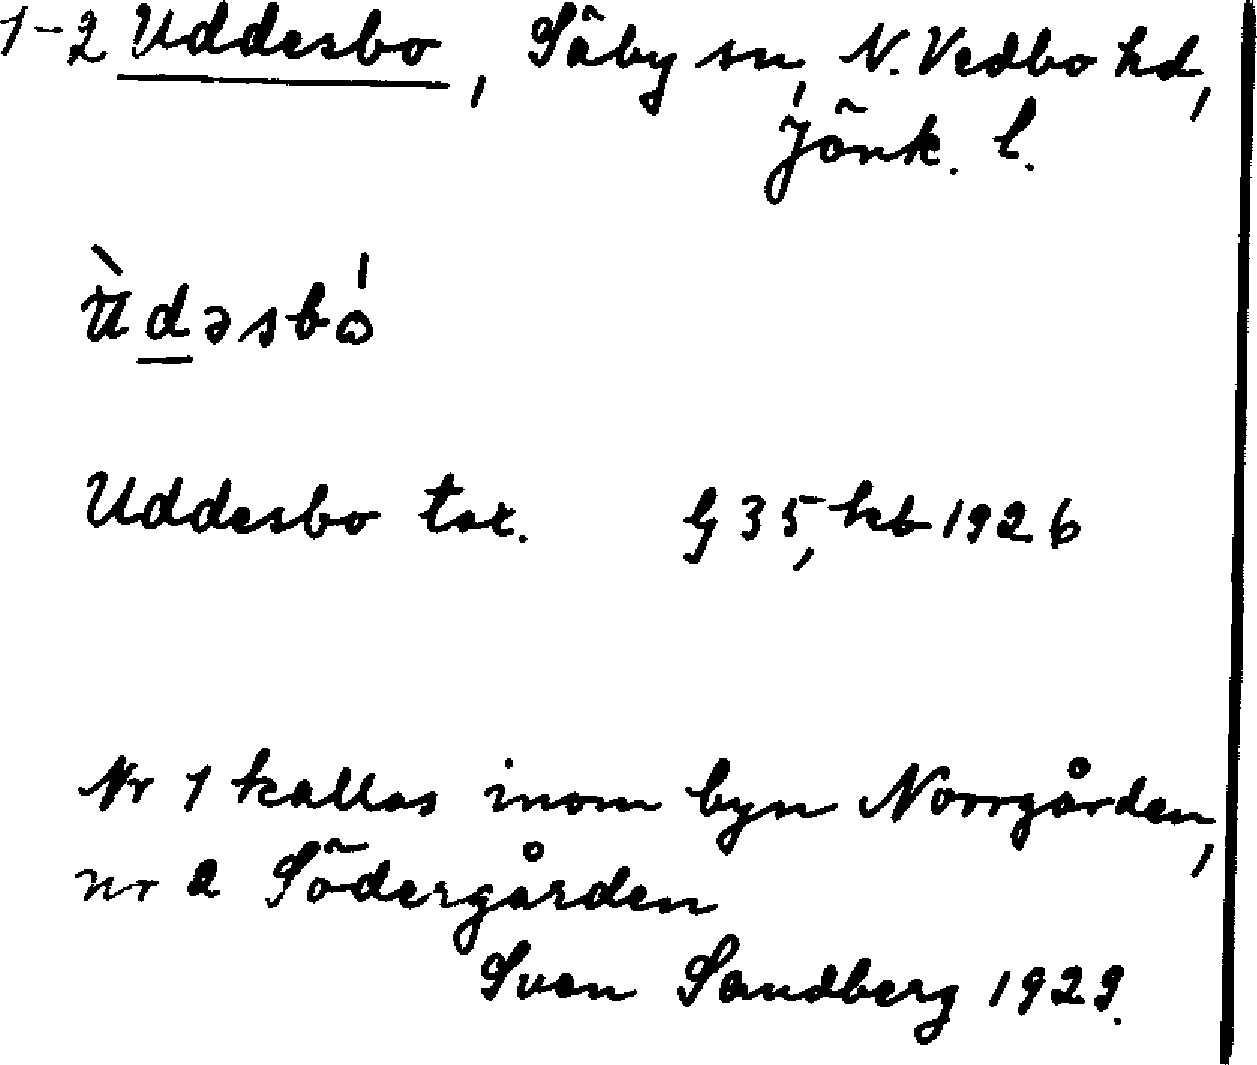 1-2 Uddesbo, Säby sn, N. Vedbo hd,
Jönk. l.
ù̈dəsbó
Uddesbo tax. G 35, kb 1926
Nr 1 kallas inom byn Norrgården,
nr 2 Södergården
Sven Sandberg 1929.